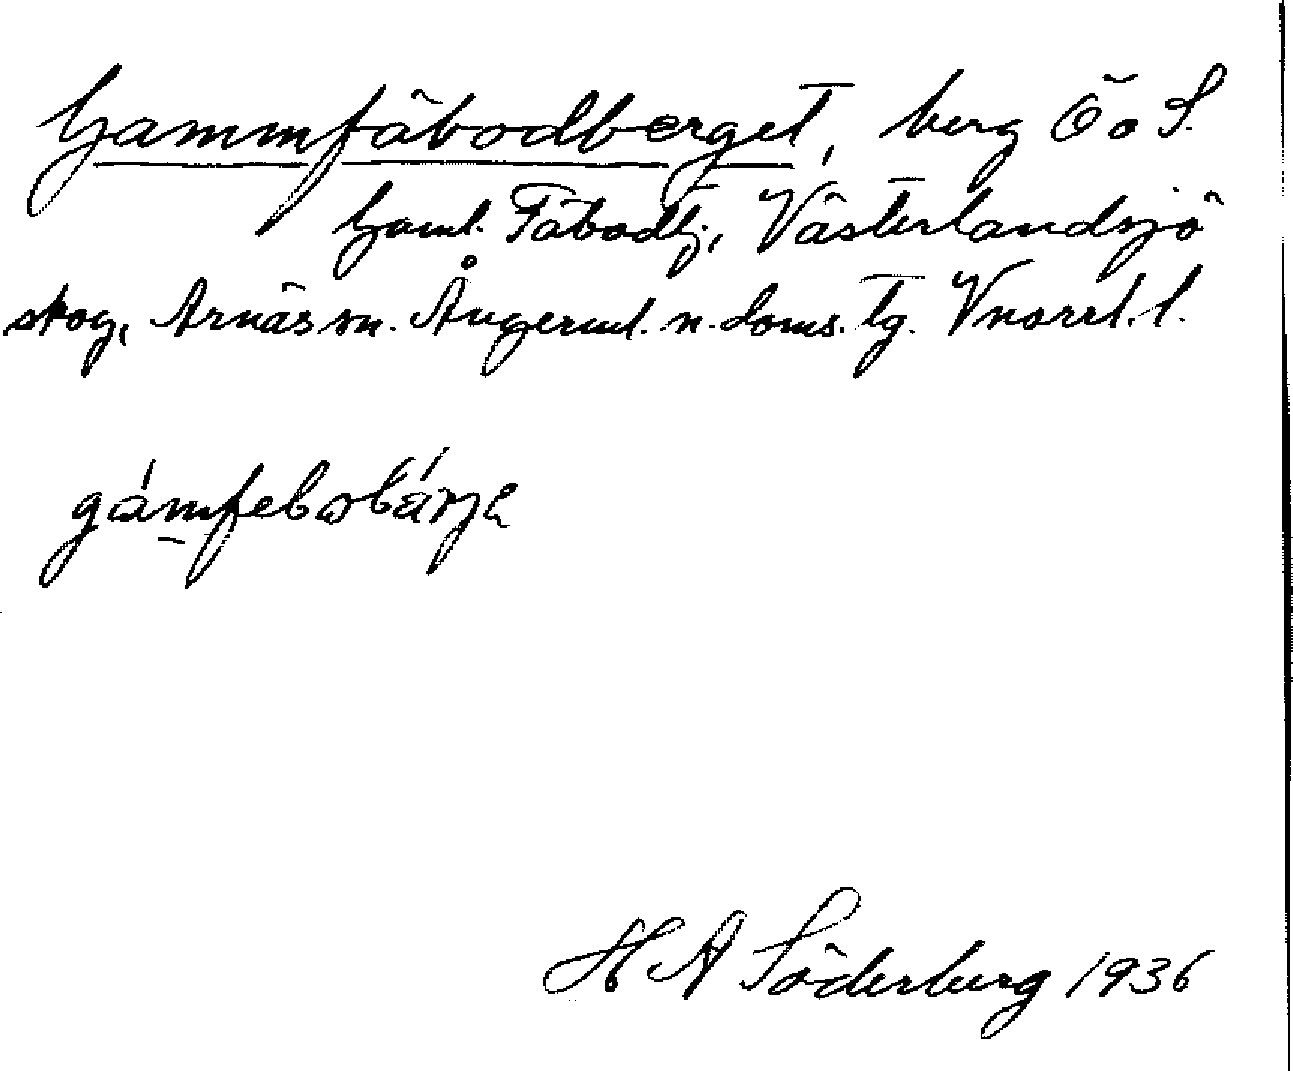 Gammfäbodberget, berg Ö o S.
Gaml. Fäbodtj., Västerlandsjö
skog, Arnäs sn. Ångerml. n. doms. tg. Vnorrl. l.
gámfebobárjə
H A Söderberg 1936